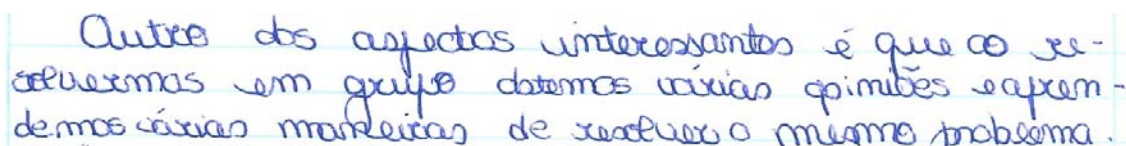 Outro dos aspectos interessantes é que ao re-
solvermos em grupo obtemos várias opiniões e apren-
demos várias maneiras de resolver o mesmo problema.